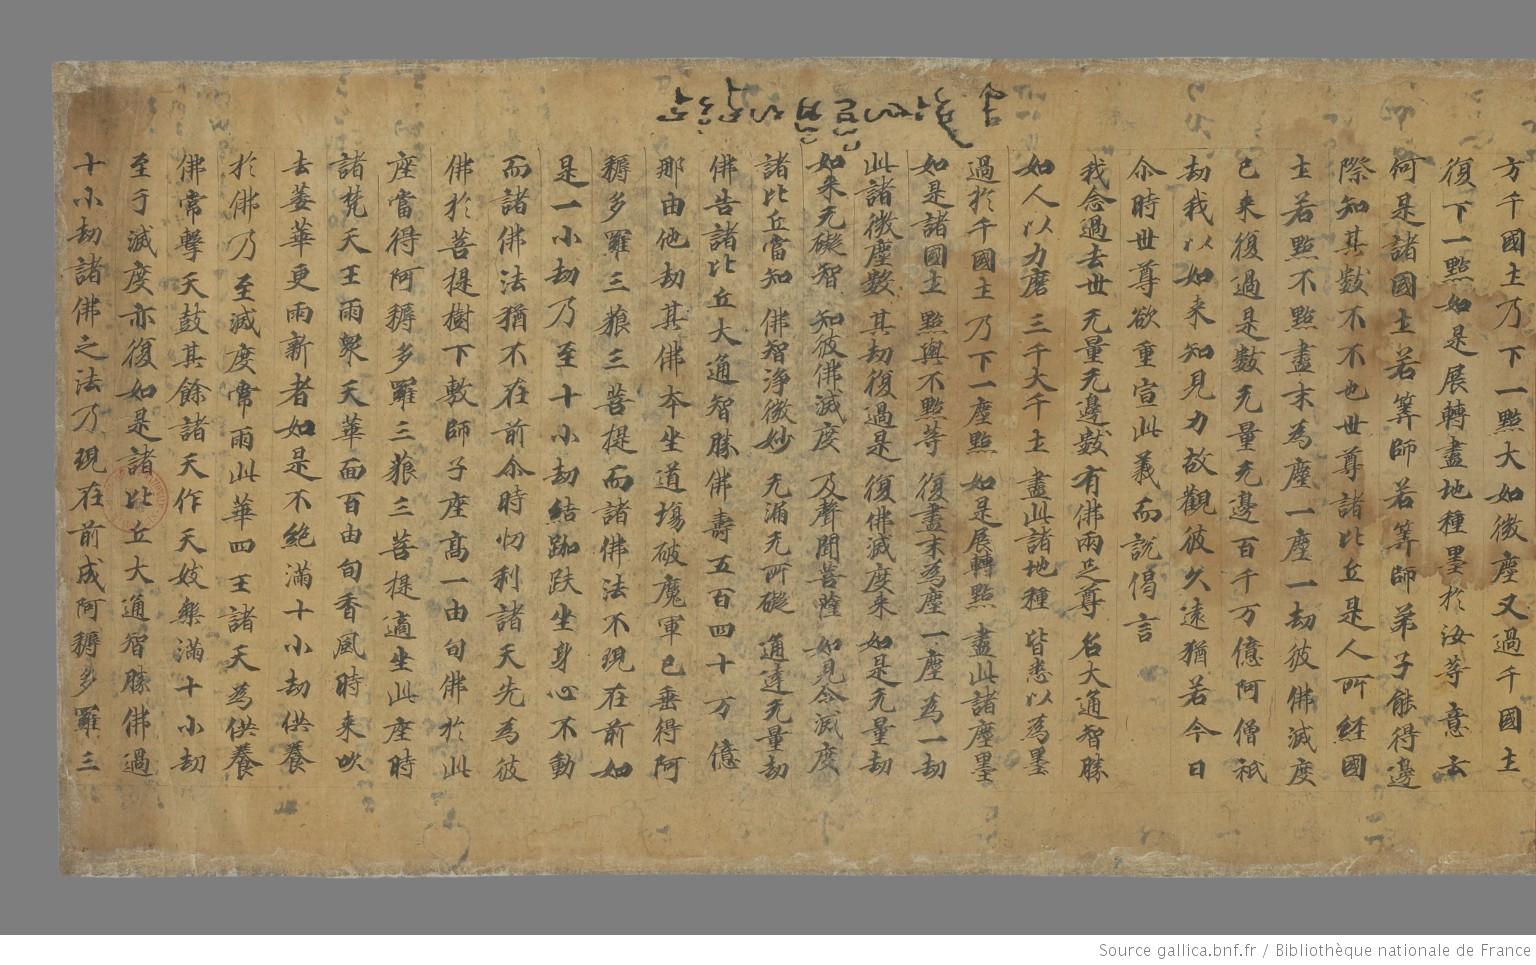 方千國土乃下一點大如微塵又過千國土
復下一點如是展轉盡地種墨於汝等意云
何是諸國土若筭師若筭師弟子能得邊
際知其數不不也世尊諸比丘是人所經國
土若點不點盡末為塵一塵一劫彼佛滅度
已來復過是數无量无邊百千万億阿僧祇
劫我以如来知見力故觀彼久遠猶若今日
尒時世尊欲重宣此義而說偈言
我念過去世无量无邊數有佛兩足尊名大通智勝
如人以力磨三千大千土盡此諸地種皆悉以為墨
過於千國土乃下一塵點如是展轉點盡此諸塵墨
如是諸國土點與不點等復盡末為塵一塵為一劫
此諸微塵數其劫復過是復佛滅度来如是无量劫
如来无礙智知彼佛滅度及聲聞菩薩如見今滅度
諸比丘當知佛智淨微妙无漏无所礙通達无量劫
佛告諸比丘大通智勝佛壽五百四十万億
那由他劫其佛夲坐道場破魔軍已垂得阿
耨多羅三藐三菩提而諸佛法不現在前如
是一小劫乃至十小劫結跏趺坐身心不動
而諸佛法猶不在前尒時忉利諸天先為彼
佛於菩提樹下敷師子座高一由旬佛於此
座當得阿耨多羅三藐三菩提適坐此座時
諸梵天王雨衆天華面百由旬香風時来吹
去萎華更雨新者如是不絶滿十小劫供養
於佛乃至滅度常雨此華四王諸天為供養
佛常擊天鼓其餘諸天作天妓樂滿十小劫
至于滅度亦復如是諸比丘大通智勝佛過
十小劫諸佛之法乃現在前成阿耨多羅三
Source gallica.bnf.fr / Bibliothèque nationale de France